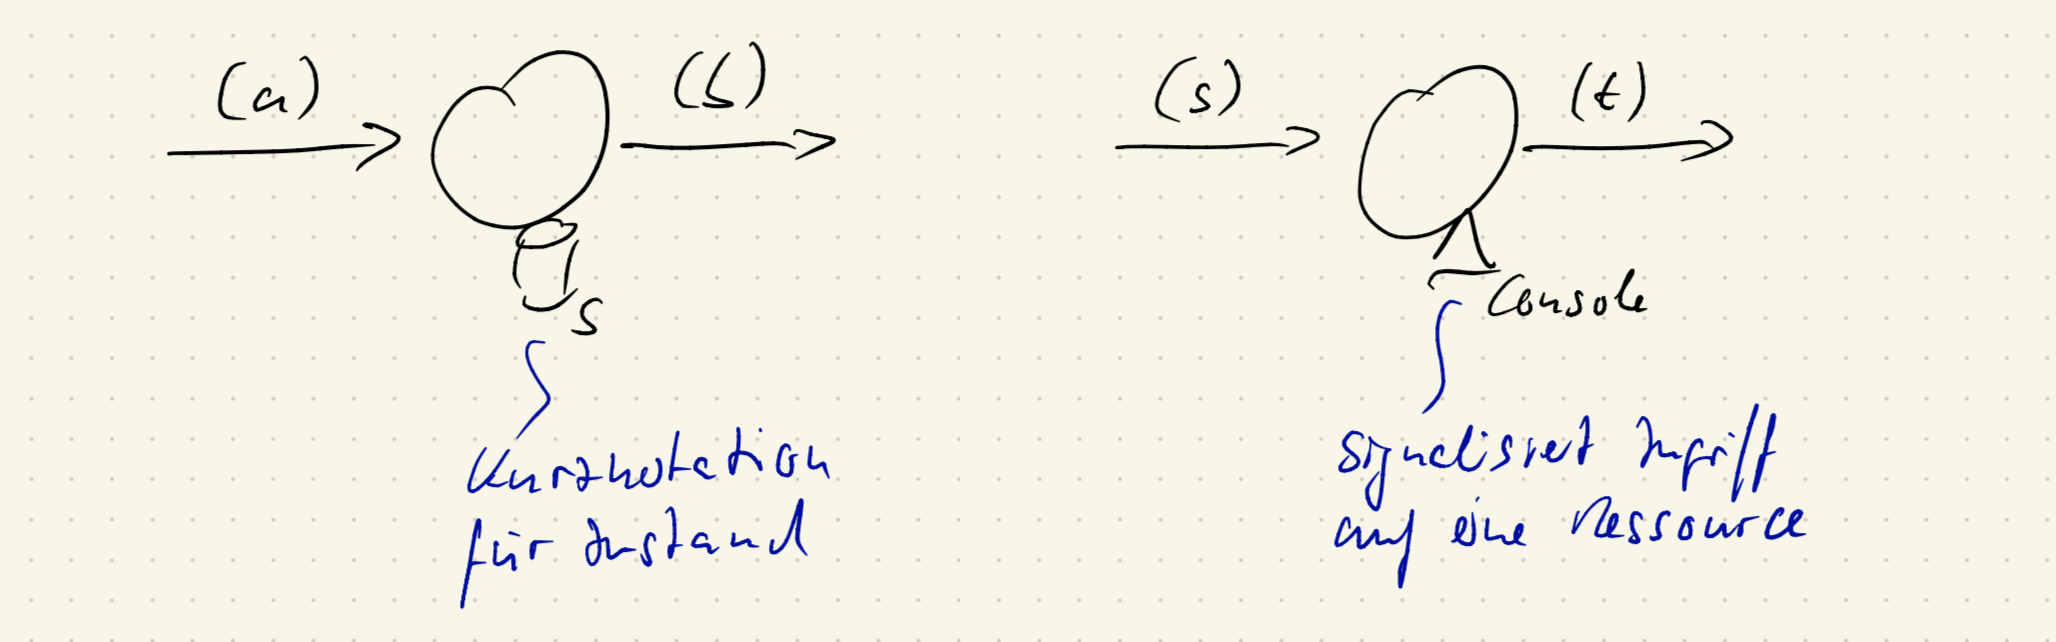 (a)
(b)
s
Kurznotation
für Zustand
(s)
(t)
Console
signalisiert Zugriff
auf eine Ressource